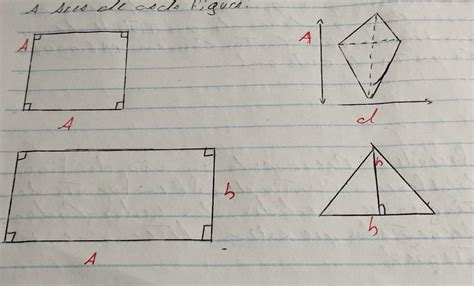 A área de cada figura.
A
A
A
d
A
b
h
b